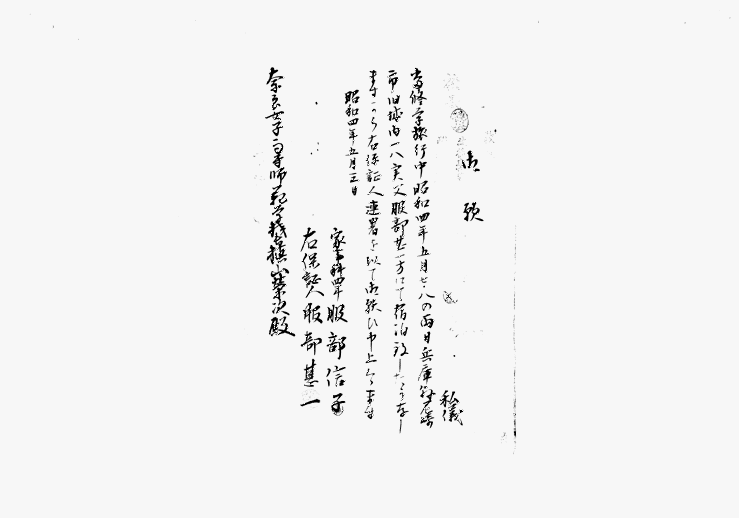 御願
私儀
当修学旅行中昭和四年五月七、八の両日兵庫県尼崎
市旧城内一八実父服部甚一方にて宿泊致したく存じ
ますから右保証人連署を以て御願ひ申上げます
昭和四年五月三日
家事科四年服部信子
右保証人服部甚一
奈良女子高等師範学校長槇山栄次殿